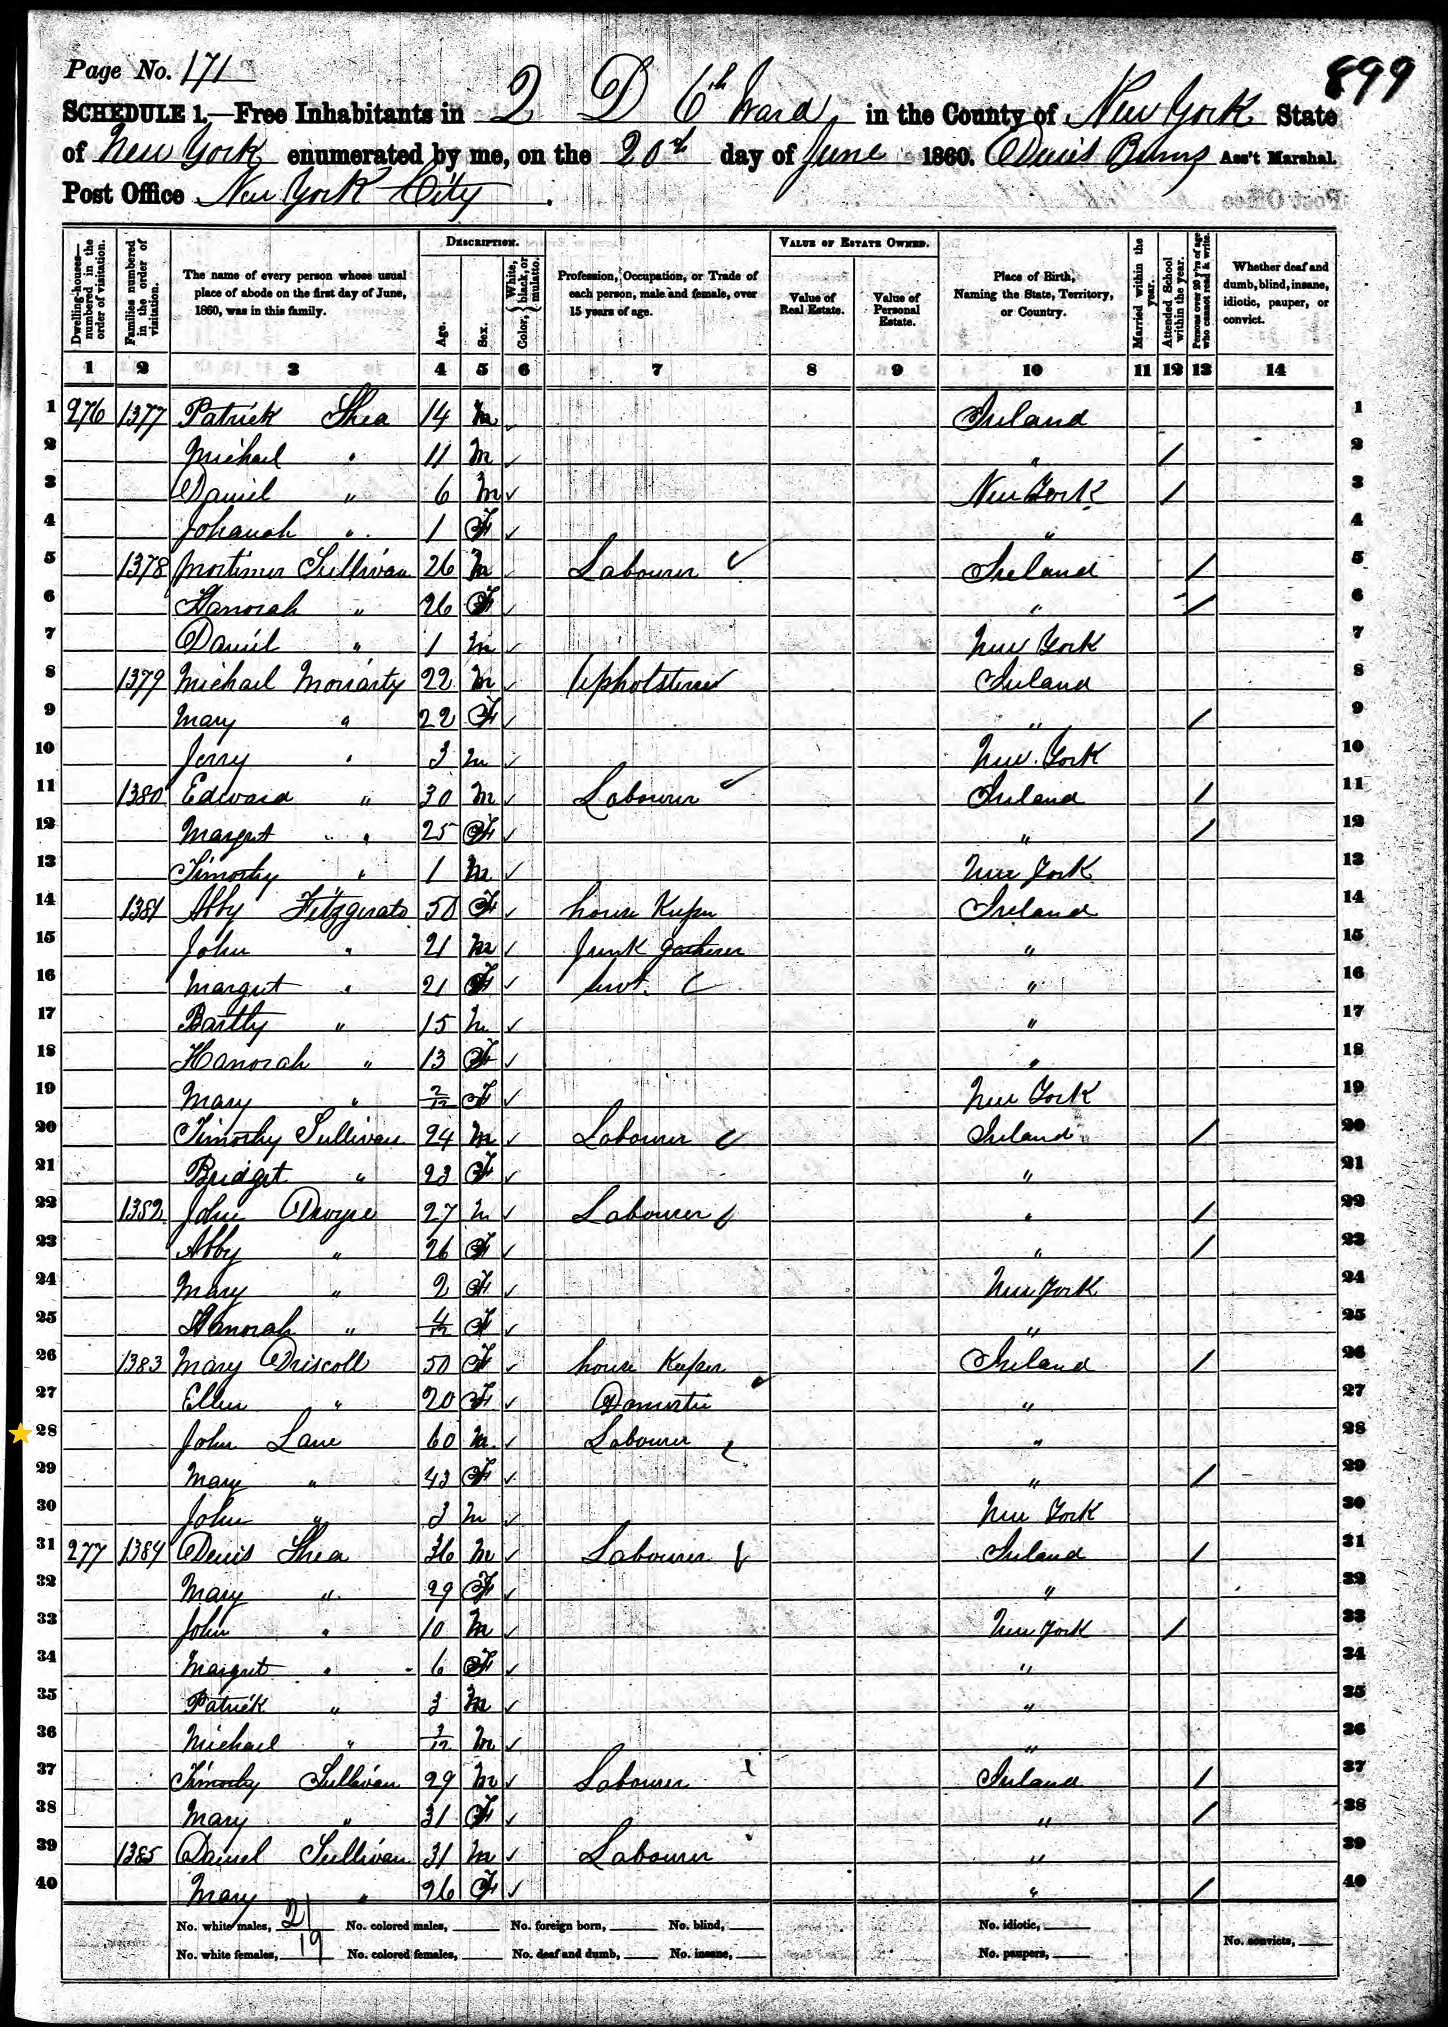 Page No. 171
899
SCHEDULE 1.—Free Inhabitants in 2 D 6th Ward in the County of New York State
of New York enumerated by me, on the 20th day of June 1860. Denis Burns Ass't Marshal.
Post Office New York City.
DESCRIPTION. VALUE OF ESTATE OWNED.
Dwelling-houses—numbered in the order of visitation.
Families numbered in the order of visitation.
The name of every person whose usual place of abode on the first day of June, 1860, was in this family.
Age.
Sex.
Color, { White, black, or mulatto.
Profession, Occupation, or Trade of each person, male and female, over 15 years of age.
Value of Real Estate.
Value of Personal Estate.
Place of Birth, Naming the State, Territory, or Country.
Married within the year.
Attended School within the year.
Persons over 20 y'rs of age who cannot read & write.
Whether deaf and dumb, blind, insane, idiotic, pauper, or convict.
1 2 3 4 5 6 7 8 9 10 11 12 13 14
1 276 1377 Patrick Shea 14 m ✓ Ireland 1
2 Michael " 11 m ✓ " / 2
3 Daniel " 6 m ✓ New York / 3
4 Johanah " 1 F ✓ " 4
5 1378 Mortimer Sullivan 26 m ✓ Labourer ✓ Ireland / 5
6 Hanorah " 26 F ✓ " / 6
7 Daniel " 1 m ✓ New York 7
8 1379 Michael Moriarty 22 m ✓ Upholsterer ✓ Ireland 8
9 Mary " 22 F ✓ " / 9
10 Jerry " 3 m ✓ New York 10
11 1380 Edward " 30 m ✓ Labourer ✓ Ireland / 11
12 Margret " 25 F ✓ " / 12
13 Timothy " 1 m ✓ New York 13
14 1381 Abby Fitzgerald 50 F ✓ house Keeper Ireland 14
15 John " 21 m ✓ Junk gatherer " 15
16 Margret " 21 F ✓ Servt. " 16
17 Bartly " 15 m ✓ " 17
18 Hanorah " 13 F ✓ " 18
19 Mary " 2/12 F ✓ New York 19
20 Timothy Sullivan 24 m ✓ Labourer ✓ Ireland / 20
21 Bridget " 23 F ✓ " 21
22 1382 John Dwyre 27 m ✓ Labourer ✓ " / 22
23 Abby " 26 F ✓ " / 23
24 Mary " 2 F ✓ New York 24
25 Hanorah " 4/12 F ✓ " 25
26 1383 Mary Driscoll 50 F ✓ house Keeper Ireland / 26
27 Ellen " 20 F ✓ Domestic ✓ " 27
28 John Lane 60 m ✓ Labourer ✓ " 28
29 Mary " 43 F ✓ " / 29
30 John " 3 m ✓ New York 30
31 277 1384 Denis Shea 36 m ✓ Labourer ✓ Ireland / 31
32 Mary " 29 F ✓ " 32
33 John " 10 m ✓ New York / 33
34 Margret " 6 F ✓ " 34
35 Patrick " 3 m ✓ " 35
36 Michael " 3/12 m ✓ " 36
37 Timothy Sullivan 29 m ✓ Labourer Ireland / 37
38 Mary " 31 F ✓ " / 38
39 1385 Daniel Sullivan 31 m ✓ Labourer " 39
40 Mary " 26 F ✓ " / 40
No. white males, 21 No. colored males, No. foreign born, No. blind, No. idiotic,
No. white females, 19 No. colored females, No. deaf and dumb, No. insane, No. paupers, No. convicts,